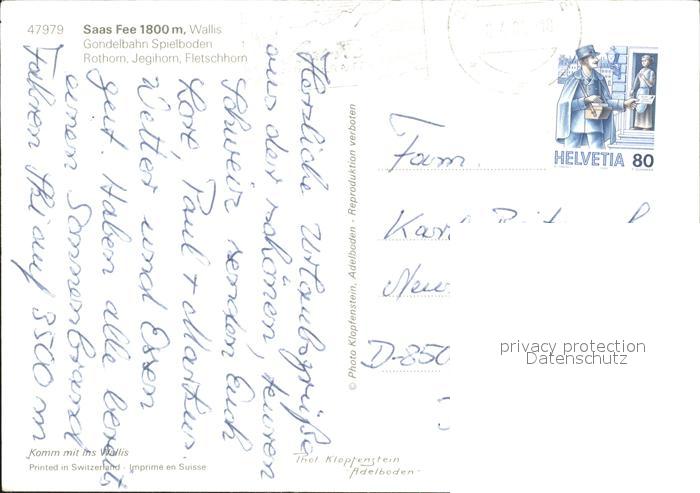 47979 Saas Fee 1800 m, Wallis
Gondelbahn Spielboden
Rothorn, Jegihorn, Fletschhorn
Herzliche Urlaubsgrüße
aus der schönen, teuren
Schweiz senden Euch
Lore, Paul + Martin.
Wetter und Essen
gut. Haben alle bereits
einen Sonnenbrand
Fahren Ski auf 3500 m
Komm mit ins Wallis
Printed in Switzerland - Imprimé en Suisse
© Photo Klopfenstein, Adelboden - Reproduktion verboten
Thol Klopfenstein
Adelboden
HELVETIA 80
Fam.
Karl
D-850
privacy protection
Datenschutz